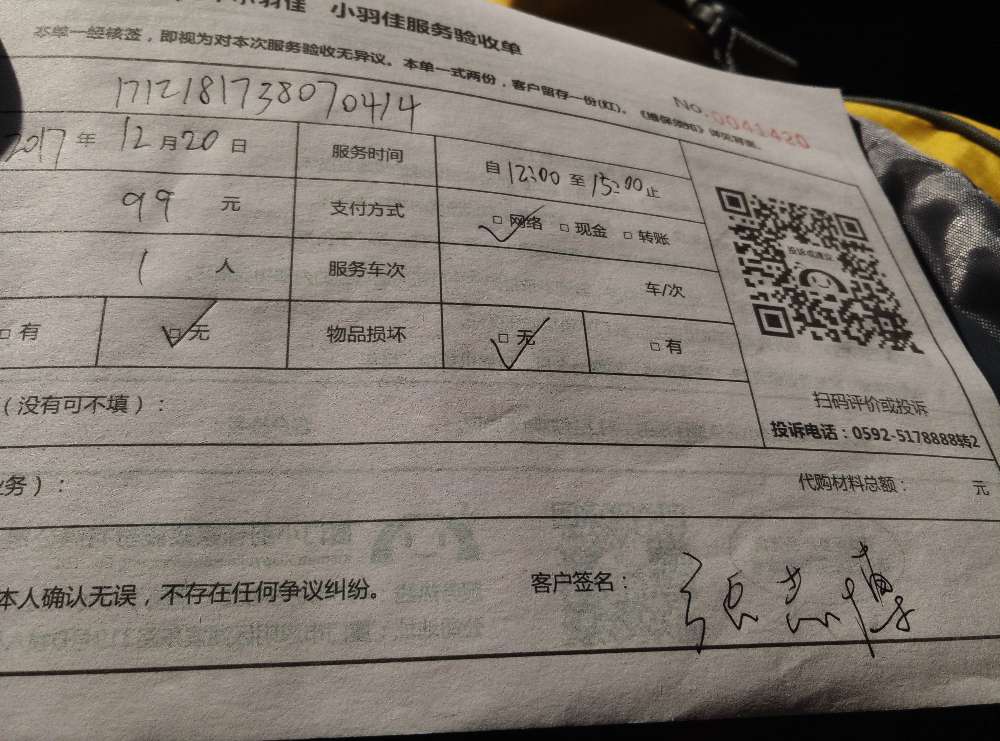 小羽佳 小羽佳服务验收单
本单一经核签，即视为对本次服务验收无异议。本单一式两份，客户留存一份(红)。《维保须知》详见背面。
No.0041420
1712181738070414
2017年12月20日 服务时间 自12:00至15:00止
99元 支付方式 □网络 □现金 □转账
1人 服务车次 车/次
□有 □无 物品损坏 □无 □有
投诉或建议
扫码评价或投诉
投诉电话：0592-5178888转2
（没有可不填）：
业务）： 代购材料总额： 元
本人确认无误，不存在任何争议纠纷。 客户签名：